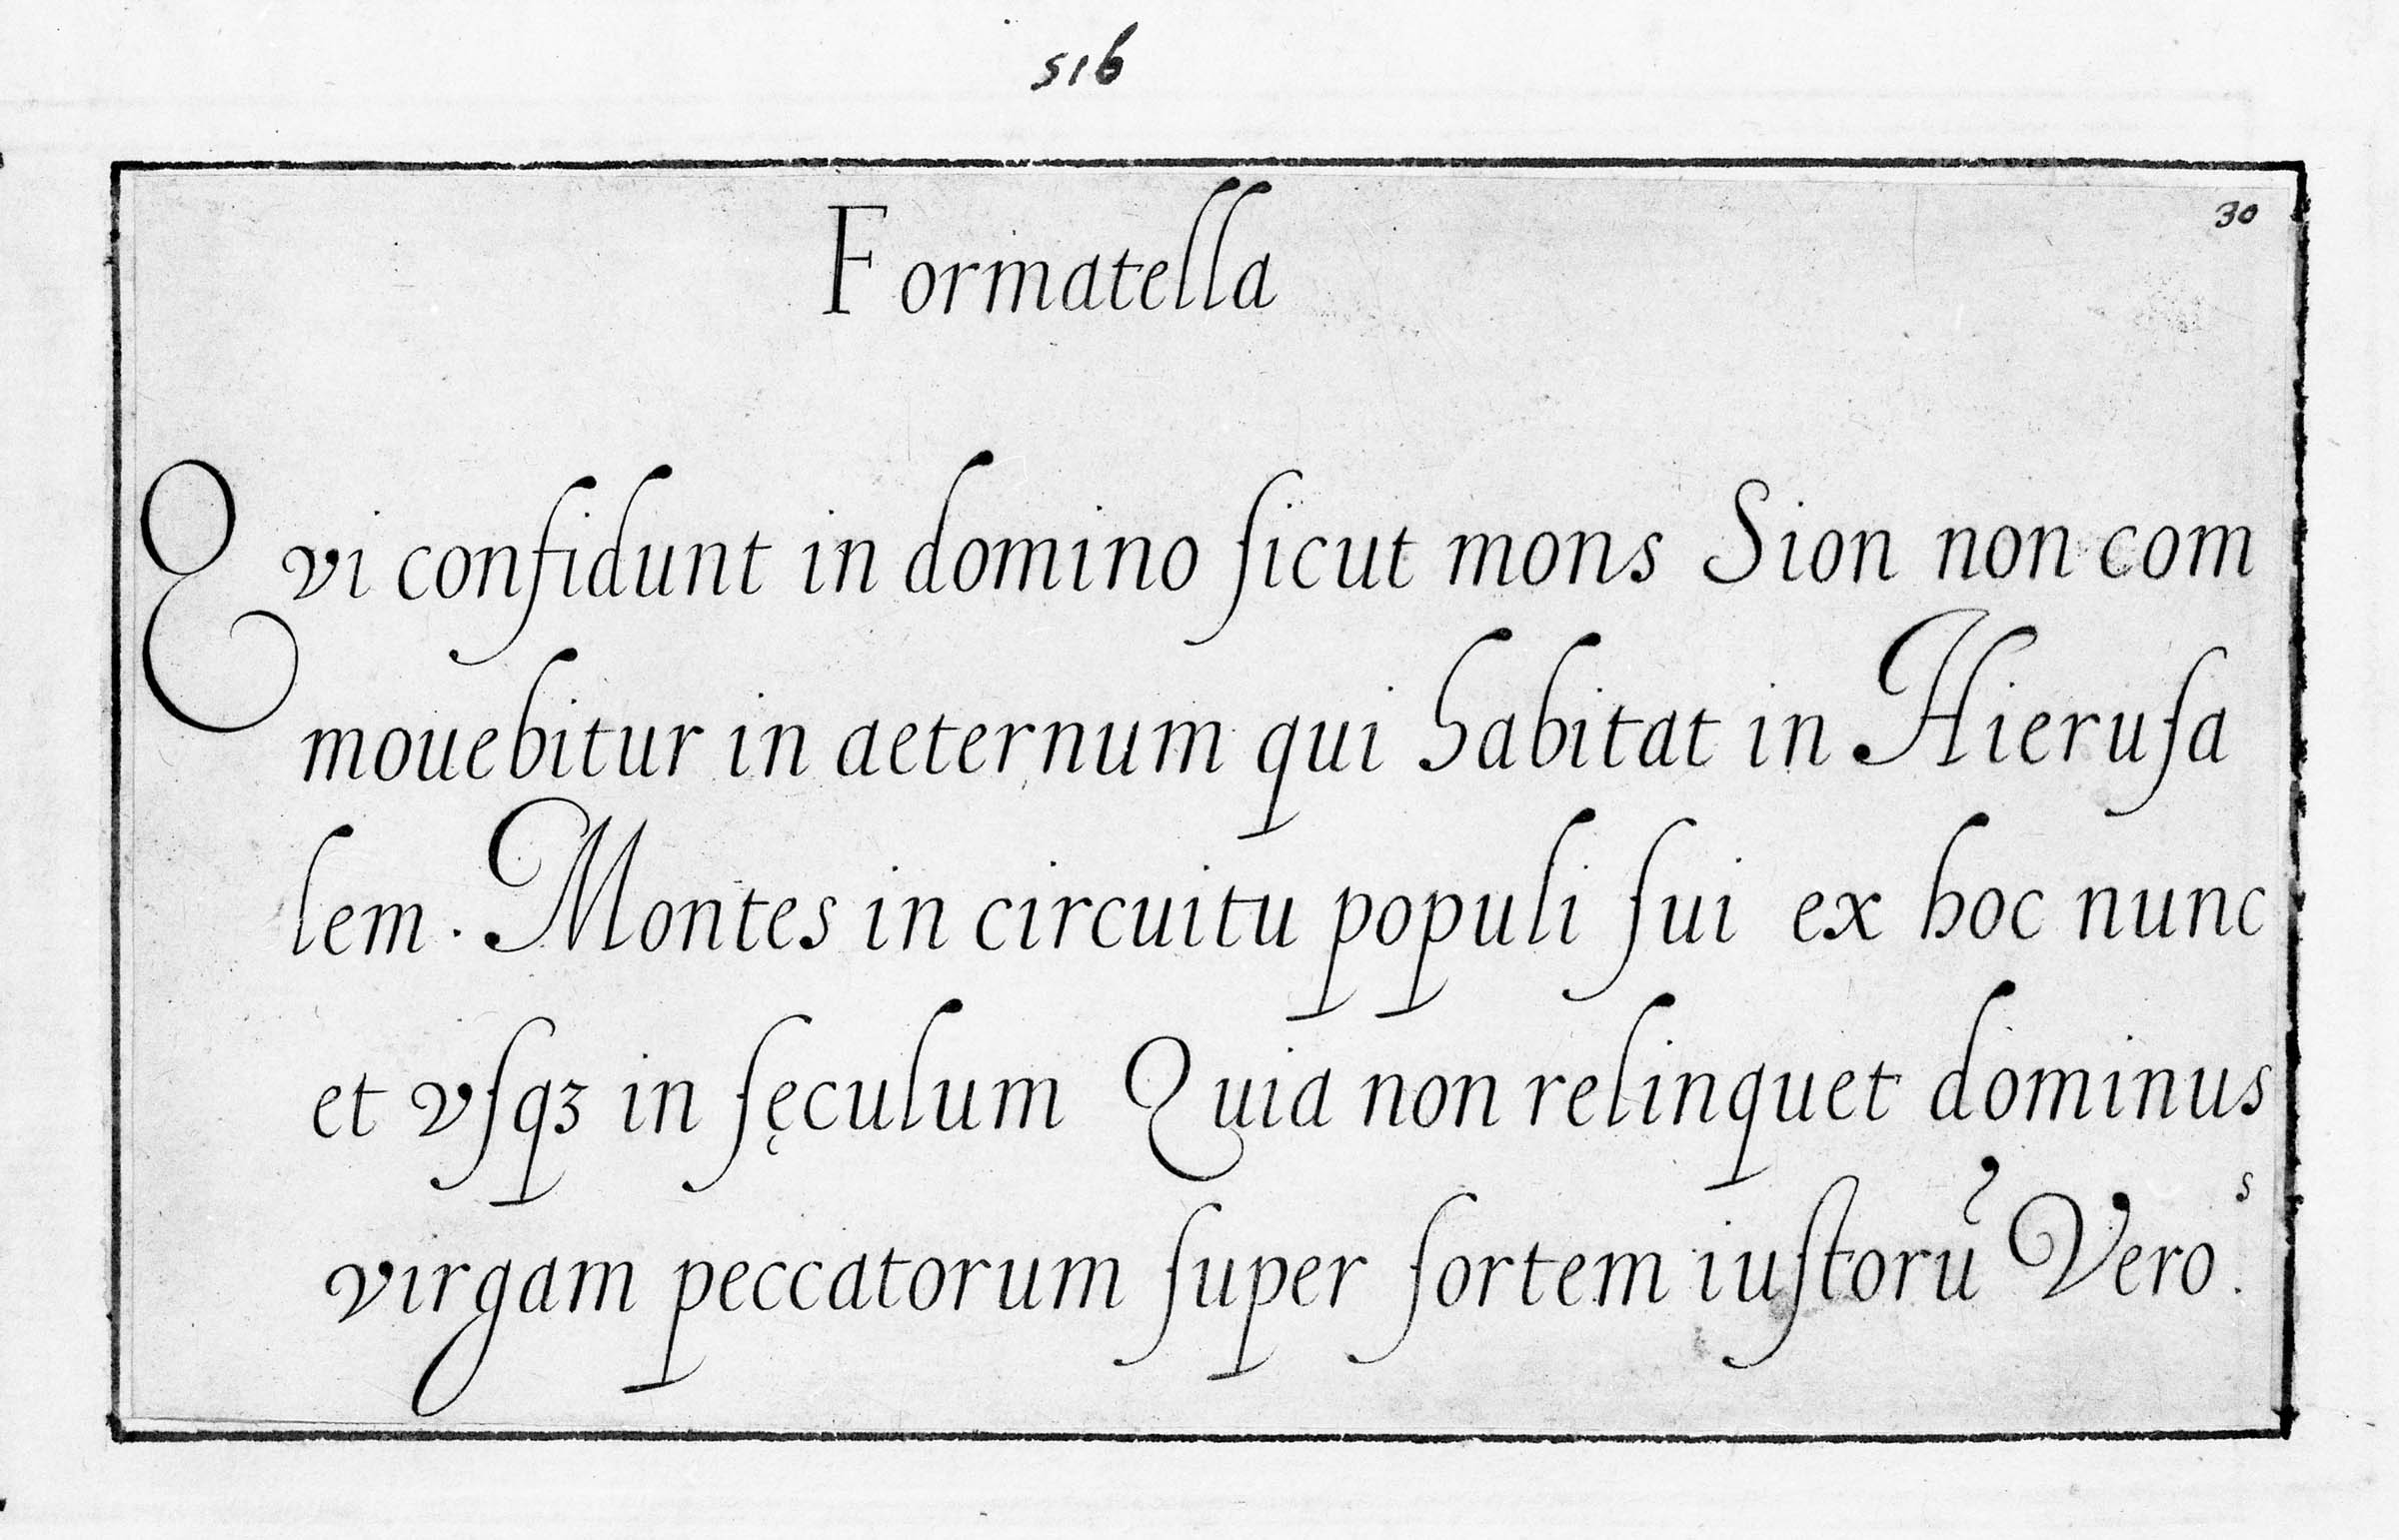 516
30
Formatella
Qui confidunt in domino ſicut mons Sion non com
mouebitur in aeternum qui habitat in Hieruſa
lem. Montes in circuitu populi ſui ex hoc nunc
et vſqꝫ in ſęculum Quia non relinquet dominus
virgam peccatorum ſuper ſortem iuſtorũ Vero.ˢ